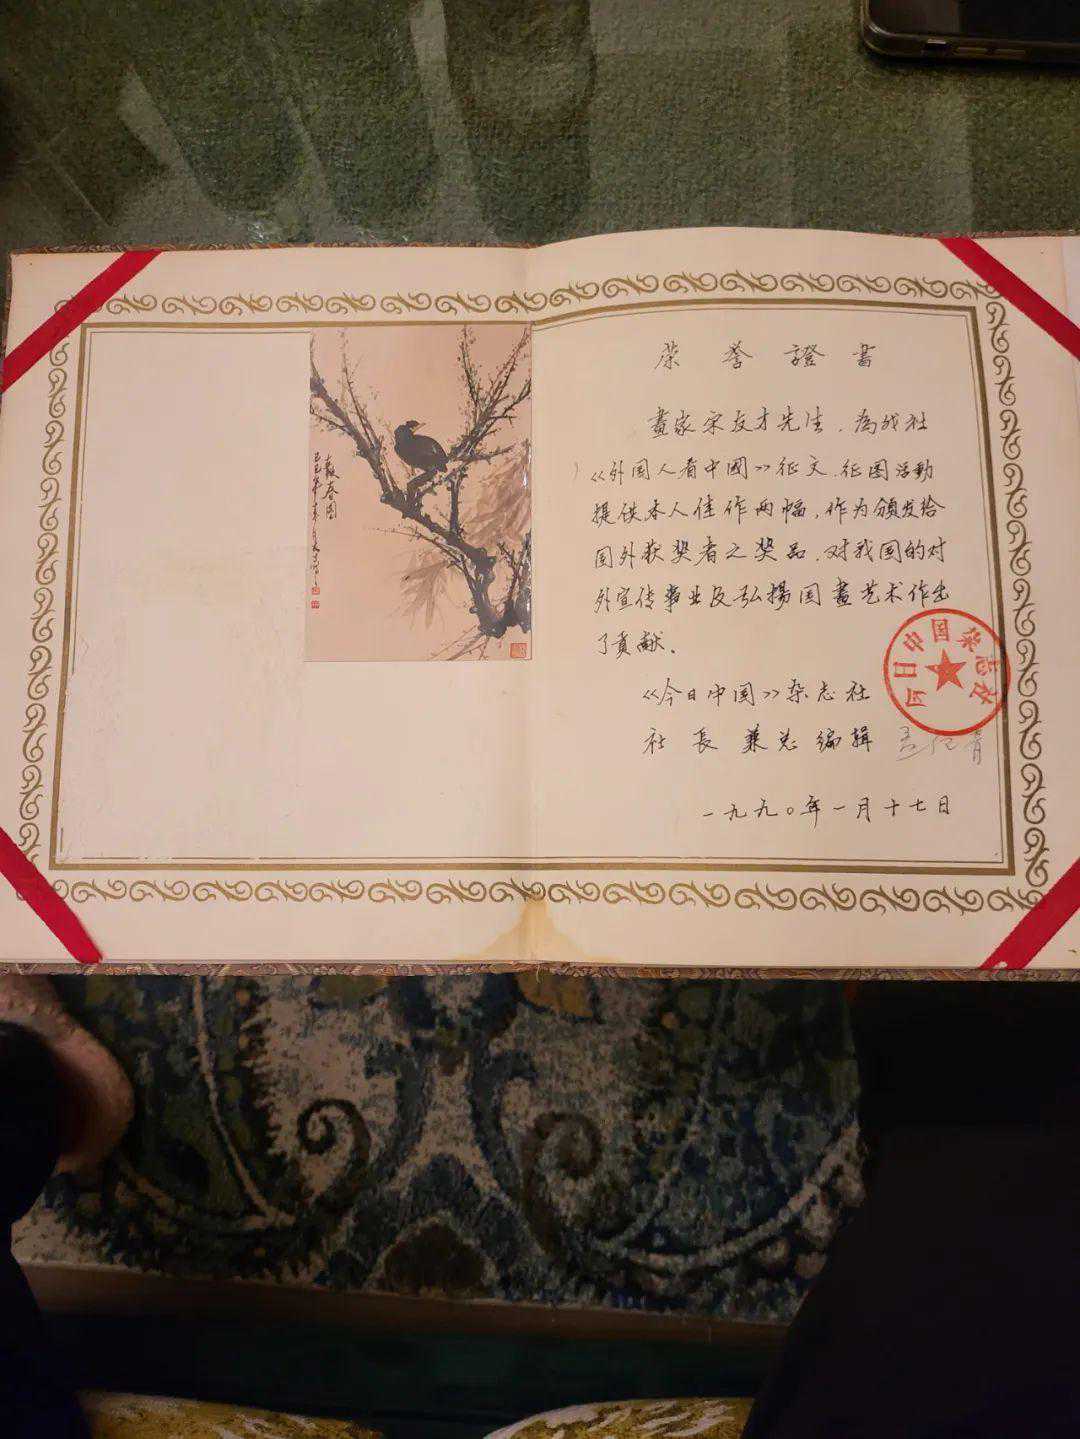 報春图
己巳年
荣誉證書
畫家宋友才先生,為我社
《外国人看中國》征文、征图活動
提供本人佳作两幅,作为頒发给
国外获奖者之奖品,对我国的对
外宣传事业及弘揚国畫艺术作出
了貢献。
《今日中国》杂志社
社長兼总编辑
一九九〇年一月十七日
今日中国杂志社